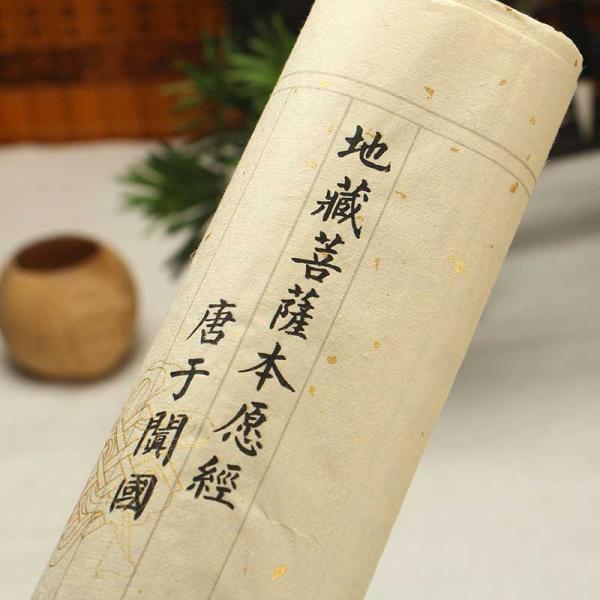 地藏菩薩本愿經
唐于闐國